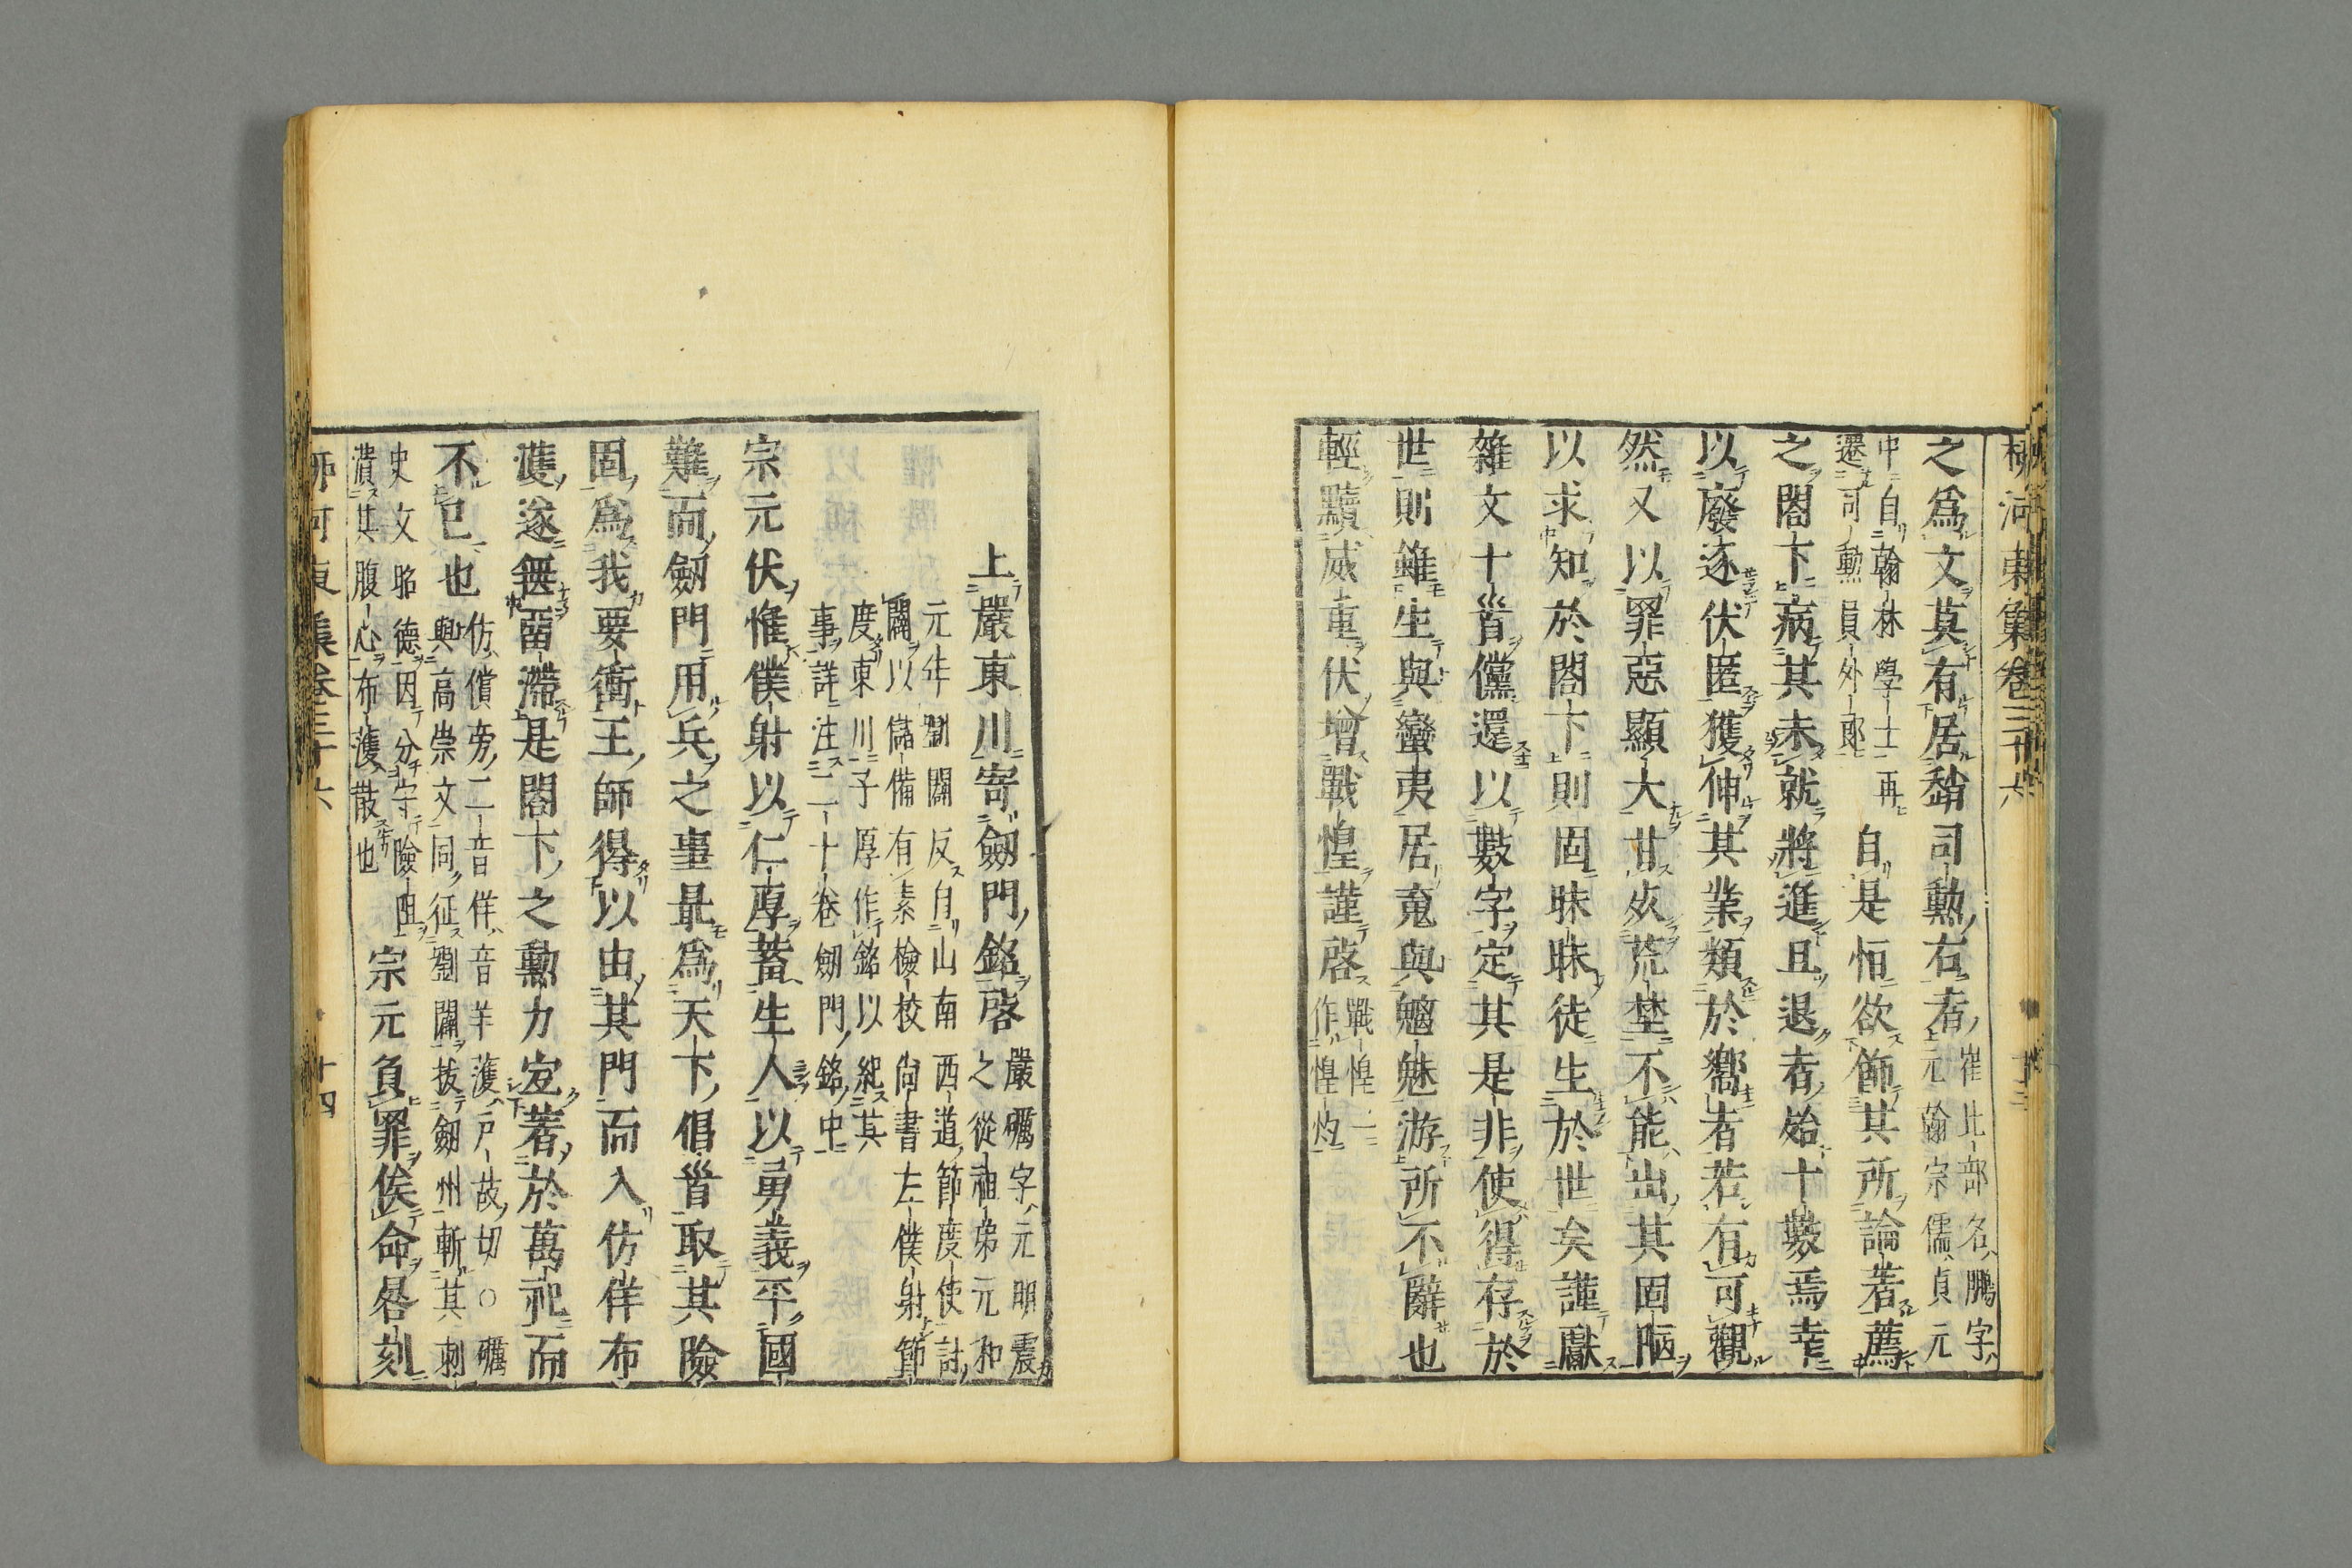 柳河東集卷三十六
之爲文莫有居嵆司勲右者崔比部名鵬字元翰宗儒貞元
中自翰林學士再
遷司勲員外郎自是恒欲飾其所論著薦
之閤下病其未就將進且退者殆十數焉幸
以廢逐伏匿獲伸其業類於嚮者若有可觀
然又以罪惡顯大甘死荒埜不能出其固陋
以求知於閤下則固昧昧徒生於世矣謹獻
雜文十首儻還以數字定其是非使得存於
世則雖生與蠻夷居䰟與魑魅游所不辭也
輕黷威重伏增戰惶謹啓戰惶一
作惶灼
上嚴東川寄劒門銘啓嚴礪字元明震
之從祖弟元和
元年劉闢反自山南西道節度使討
闢以儲備有素檢校尚書左僕射節
度東川子厚作銘以紀其
事詳注二十卷劒門銘中
宗元伏惟僕射以仁厚蓄生人以勇義平國
難而劒門用兵之事最爲天下倡首取其險
固爲我要衝王師得以由其門而入仿佯布
濩遂無留滯是閤下之勲力宜著於萬祀而
不已也仿儻旁二音佯音羊濩戸故切○礪
與高崇文同征劉闢拔劒州斬其刺
史文昭德因分守險阻
潰其腹心布濩散也宗元負罪俟命晷刻
柳河東集卷三十六
十四